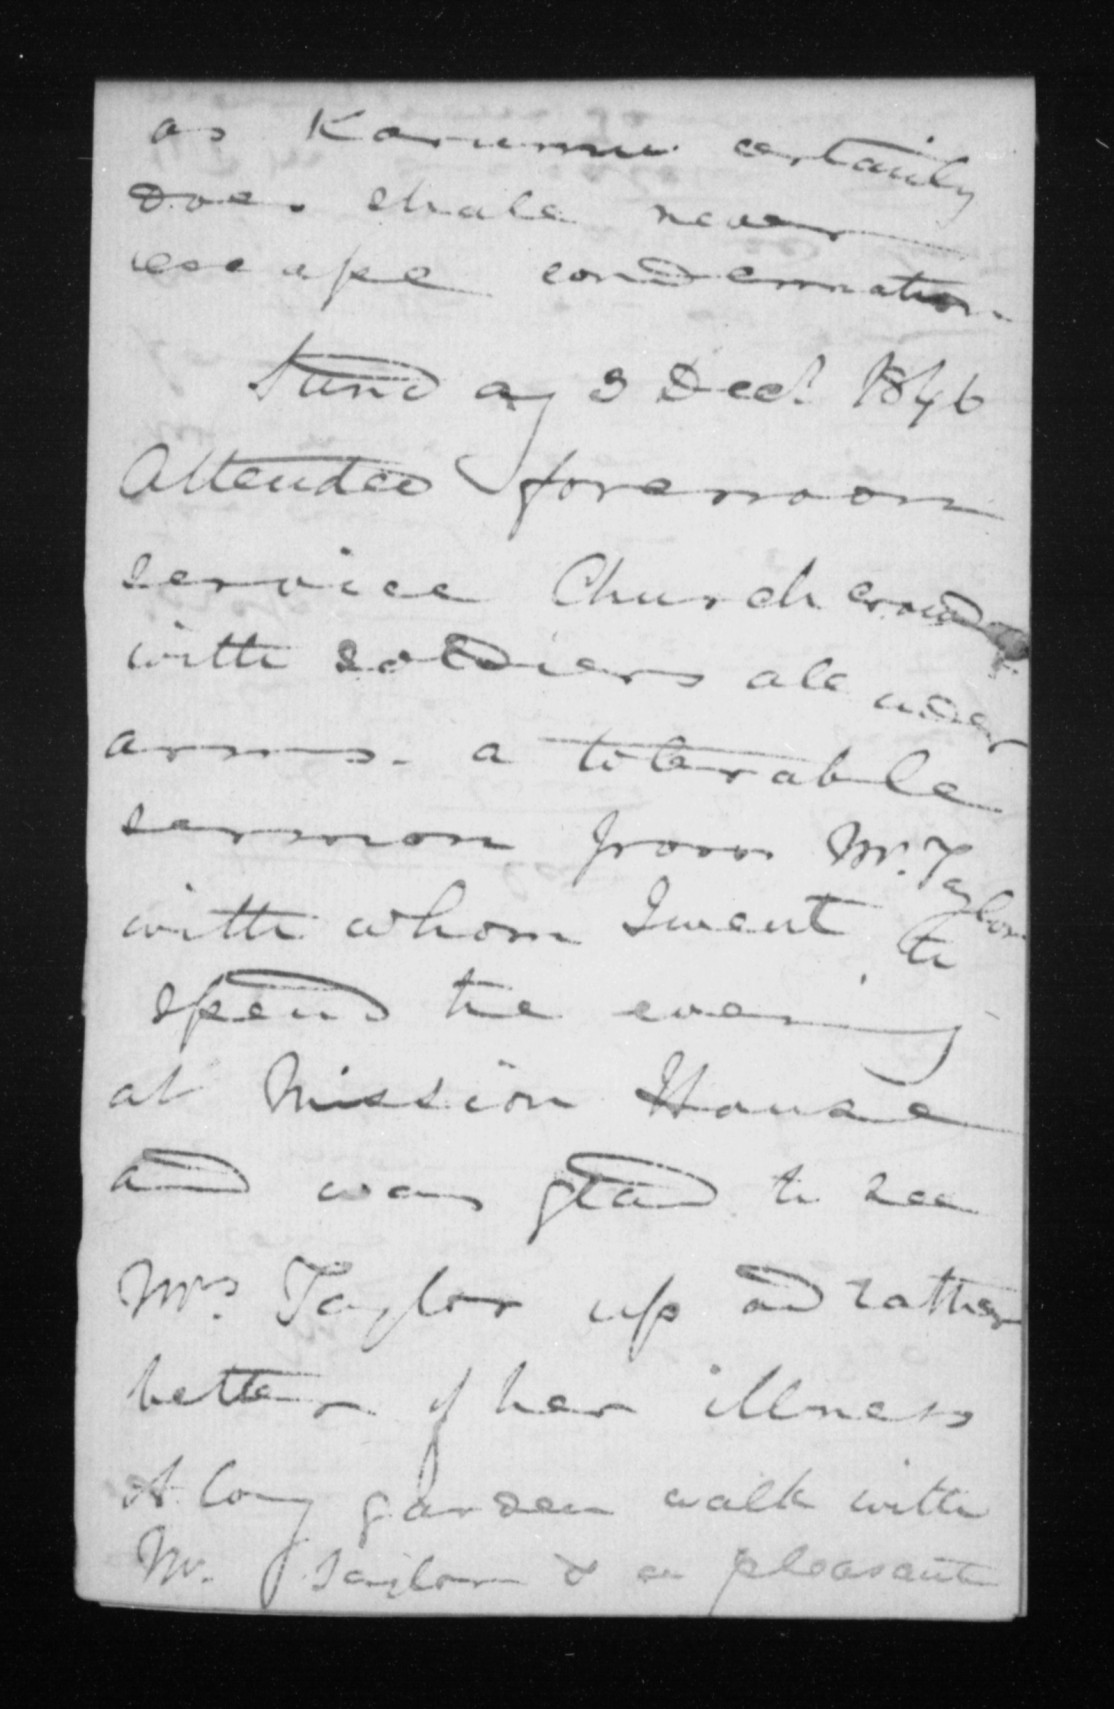 as Karumu certainly
does. shall never
escape condemnation
Sunday 3 Decr. 1846
Attended forenoon
service Church crowd
with soldiers all under
arms. a tolerable
sermon from Mr. Taylor
with whom I went to
spend the evening
at Mission House
and was glad to see
Mrs. Taylor up and rather
better of her illness
A long garden walk with
Mr. Taylor & a pleasant